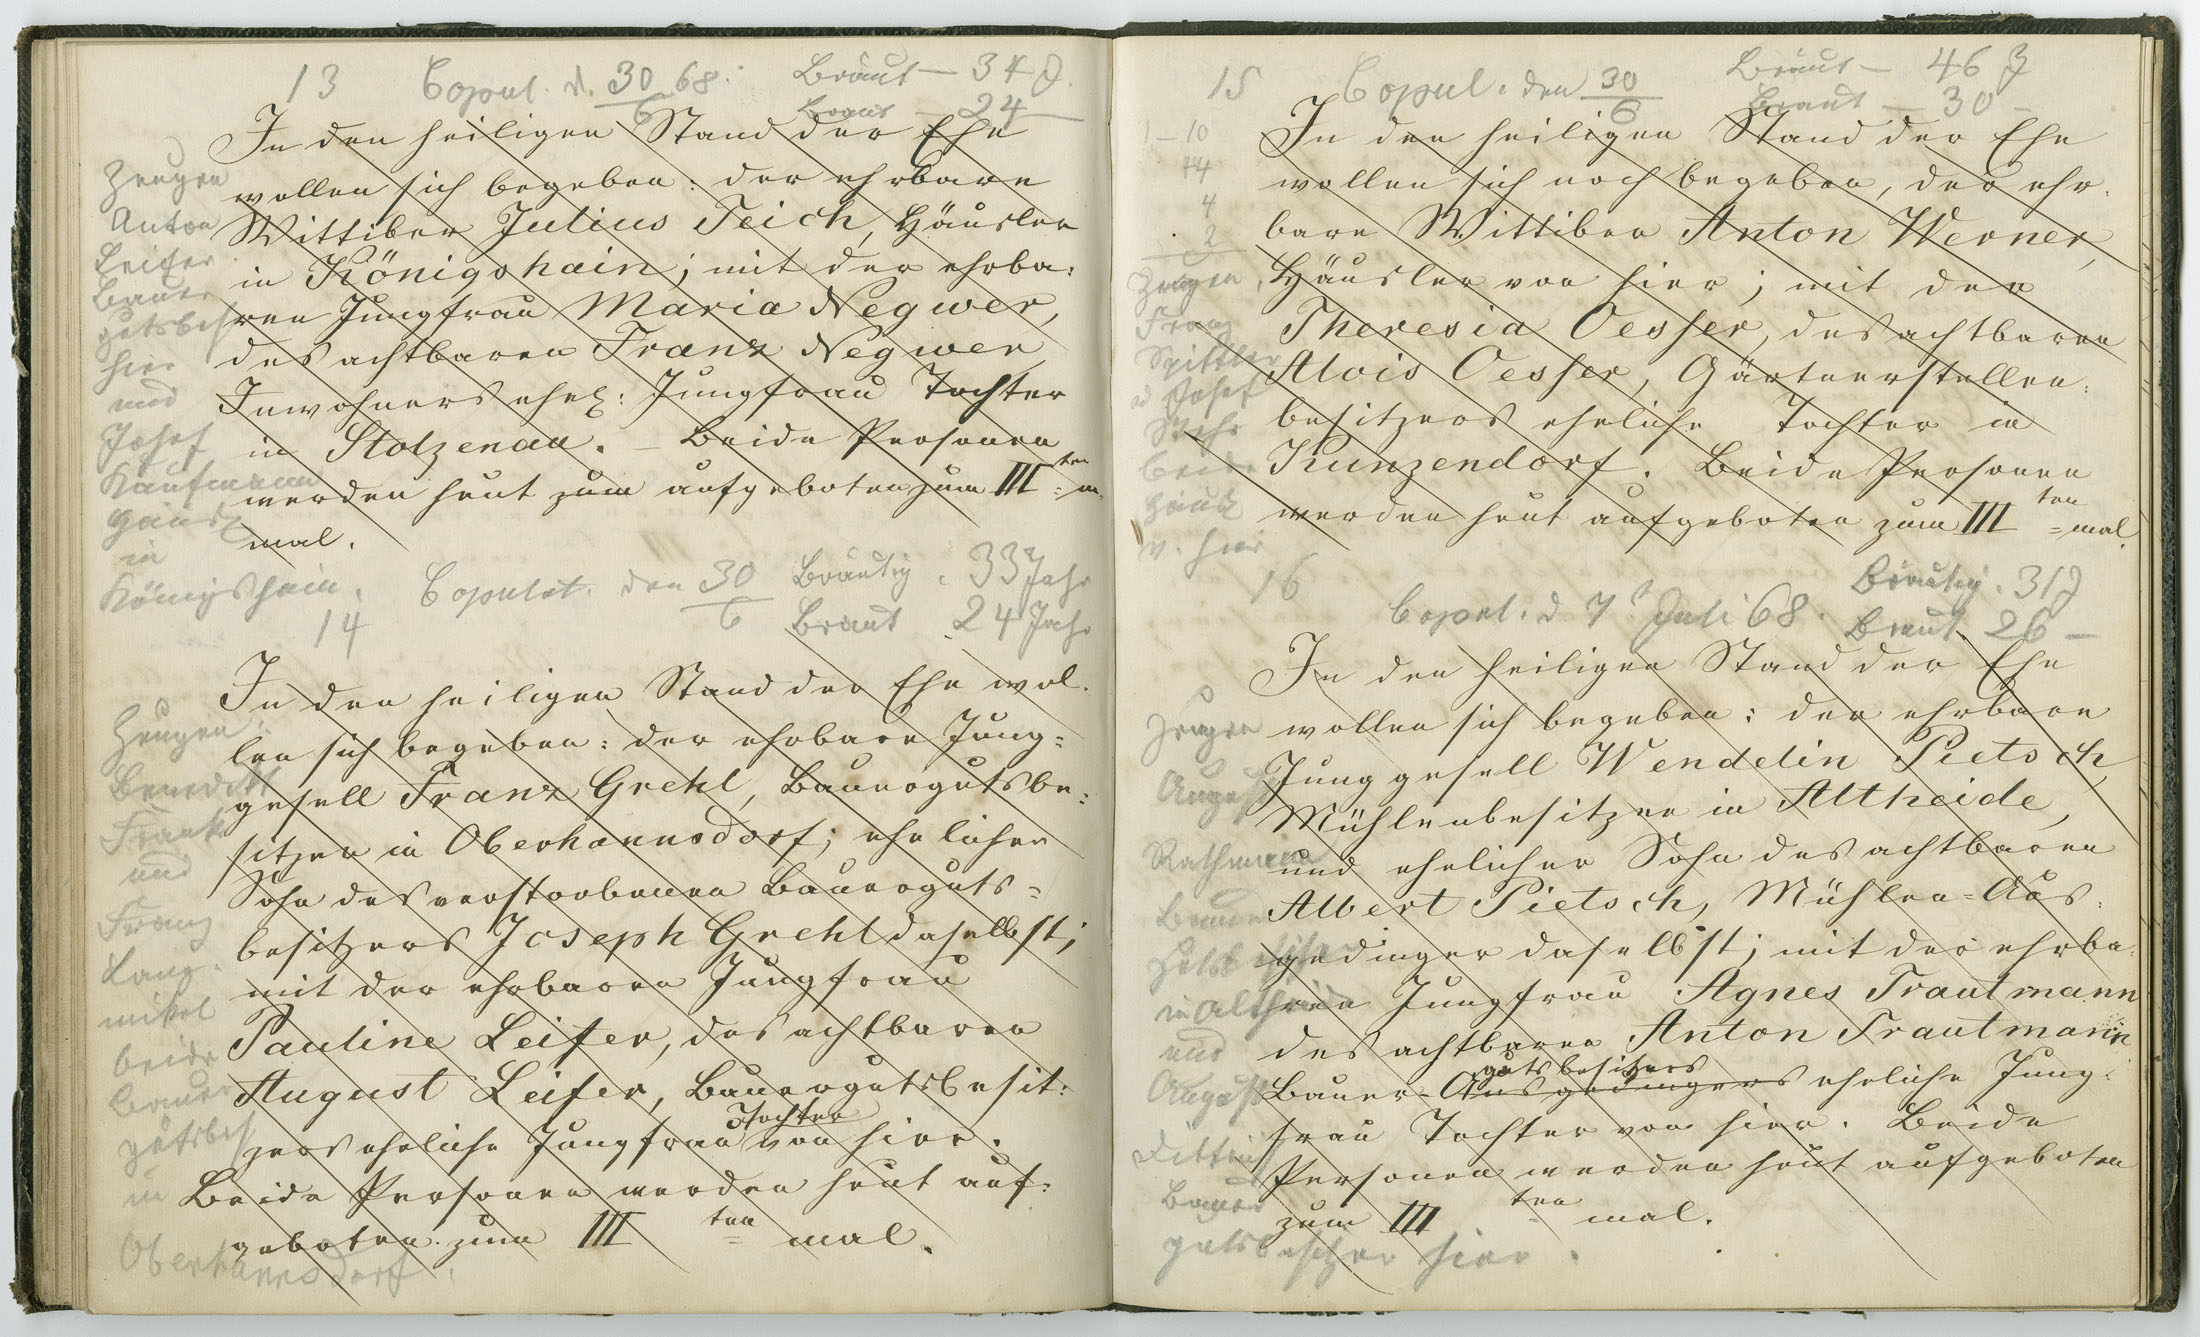 13 Copul. d. 30/6 68. Bräut — 34 J.
Braut — 24 —
In den heiligen Stand der Ehe
wollen sich begeben: der ehrbare
Wittiber Julius Teich, Häusler
in Königshain; mit der ehrba:
ren Jungfrau Maria Negwer,
des achtbaren Franz Negwer
Inwohners ehel: Jungfrau Tochter
in Stolzenau. — Beide Personen
werden heut zum aufgeboten zum III ten
mal.
Zeugen
Anton
Leifer
Bauer
gutsbes
hier
und
Josef
Kaufmann
Häusl
in
Königshain.
14 Copulat. den 30/6 Bräutig. 33 Jahr
Braut 24 Jahr
In den heiligen Stand der Ehe wol.
len sich begeben: der ehrbare Jung=
gesell Franz Grehl, Bauergutsbe:
sitzer in Oberhannsdorf; ehelicher
Sohn des verstorbenen Bauerguts=
besitzers Joseph Grehl daselbst;
mit der ehrbaren Jungfrau
Pauline Leifer, des achtbaren
August Leifer, Bauergutsbesit:
zers eheliche Jungfrau Tochter von hier.
Beide Personen werden heut auf:
geboten zum III ten = mal.
Zeugen:
Benedikt
Franke
und
Franz
Lang.
nikel
beide
Bauer
gutsbes
in
Oberhannsdorf.
15 Copul. den 30/6 Bräut — 46 J
Braut — 30 —
1–10
44
4
2
In den heiligen Stand der Ehe
wollen sich noch begeben, der ehr.
bare Wittiber Anton Werner,
Häusler von hier; mit der
Theresia Oesser, des achtbaren
Alois Oesser, Gärtnerstellen:
besitzers eheliche Tochter in
Kunzendorf. Beide Personen
werden heut aufgeboten zum III ten = mal.
Zeugen
Franz
Spittler
u Josef
beide
Häusl
v. hier
16 Copul. d. 7t Juli 68. Bräutig. 31 J
Braut 26 —
In den heiligen Stand der Ehe
wollen sich begeben: der ehrbare
Junggesell Wendelin Pietsch,
Mühlenbesitzer in Altheide,
und ehelicher Sohn des achtbaren
Albert Pietsch, Mühlen=Aus:
gedinger daselbst; mit der ehrba.
ren Jungfrau Agnes Trautmann
des achtbaren Anton Trautmann
Bauer-Ausgedingers gutsbesitzers eheliche Jung:
frau Tochter von hier. Beide
Personen werden heut aufgeboten
zum III ten = mal.
Zeugen
August
Rathmann
Bauer
gutsbesitzer
in Altheide
und
August
Dittrich
Bauer
gutsbesitzer hier.